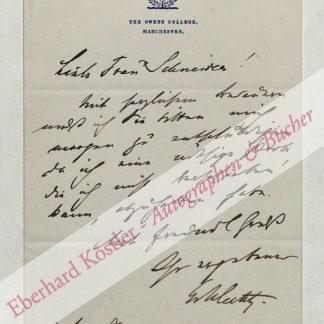 THE OWENS COLLEGE,
MANCHESTER.
Liebe Frau Schneider!
Mit herzlichem Bedauern
muß ich Sie bitten mich
morgen zu entschuldigen
da ich eine
die ich nicht
kann, habe.
Mit freundl Gruß
Ihr ergebener
Eberhard Köstler - Autographen & Bücher